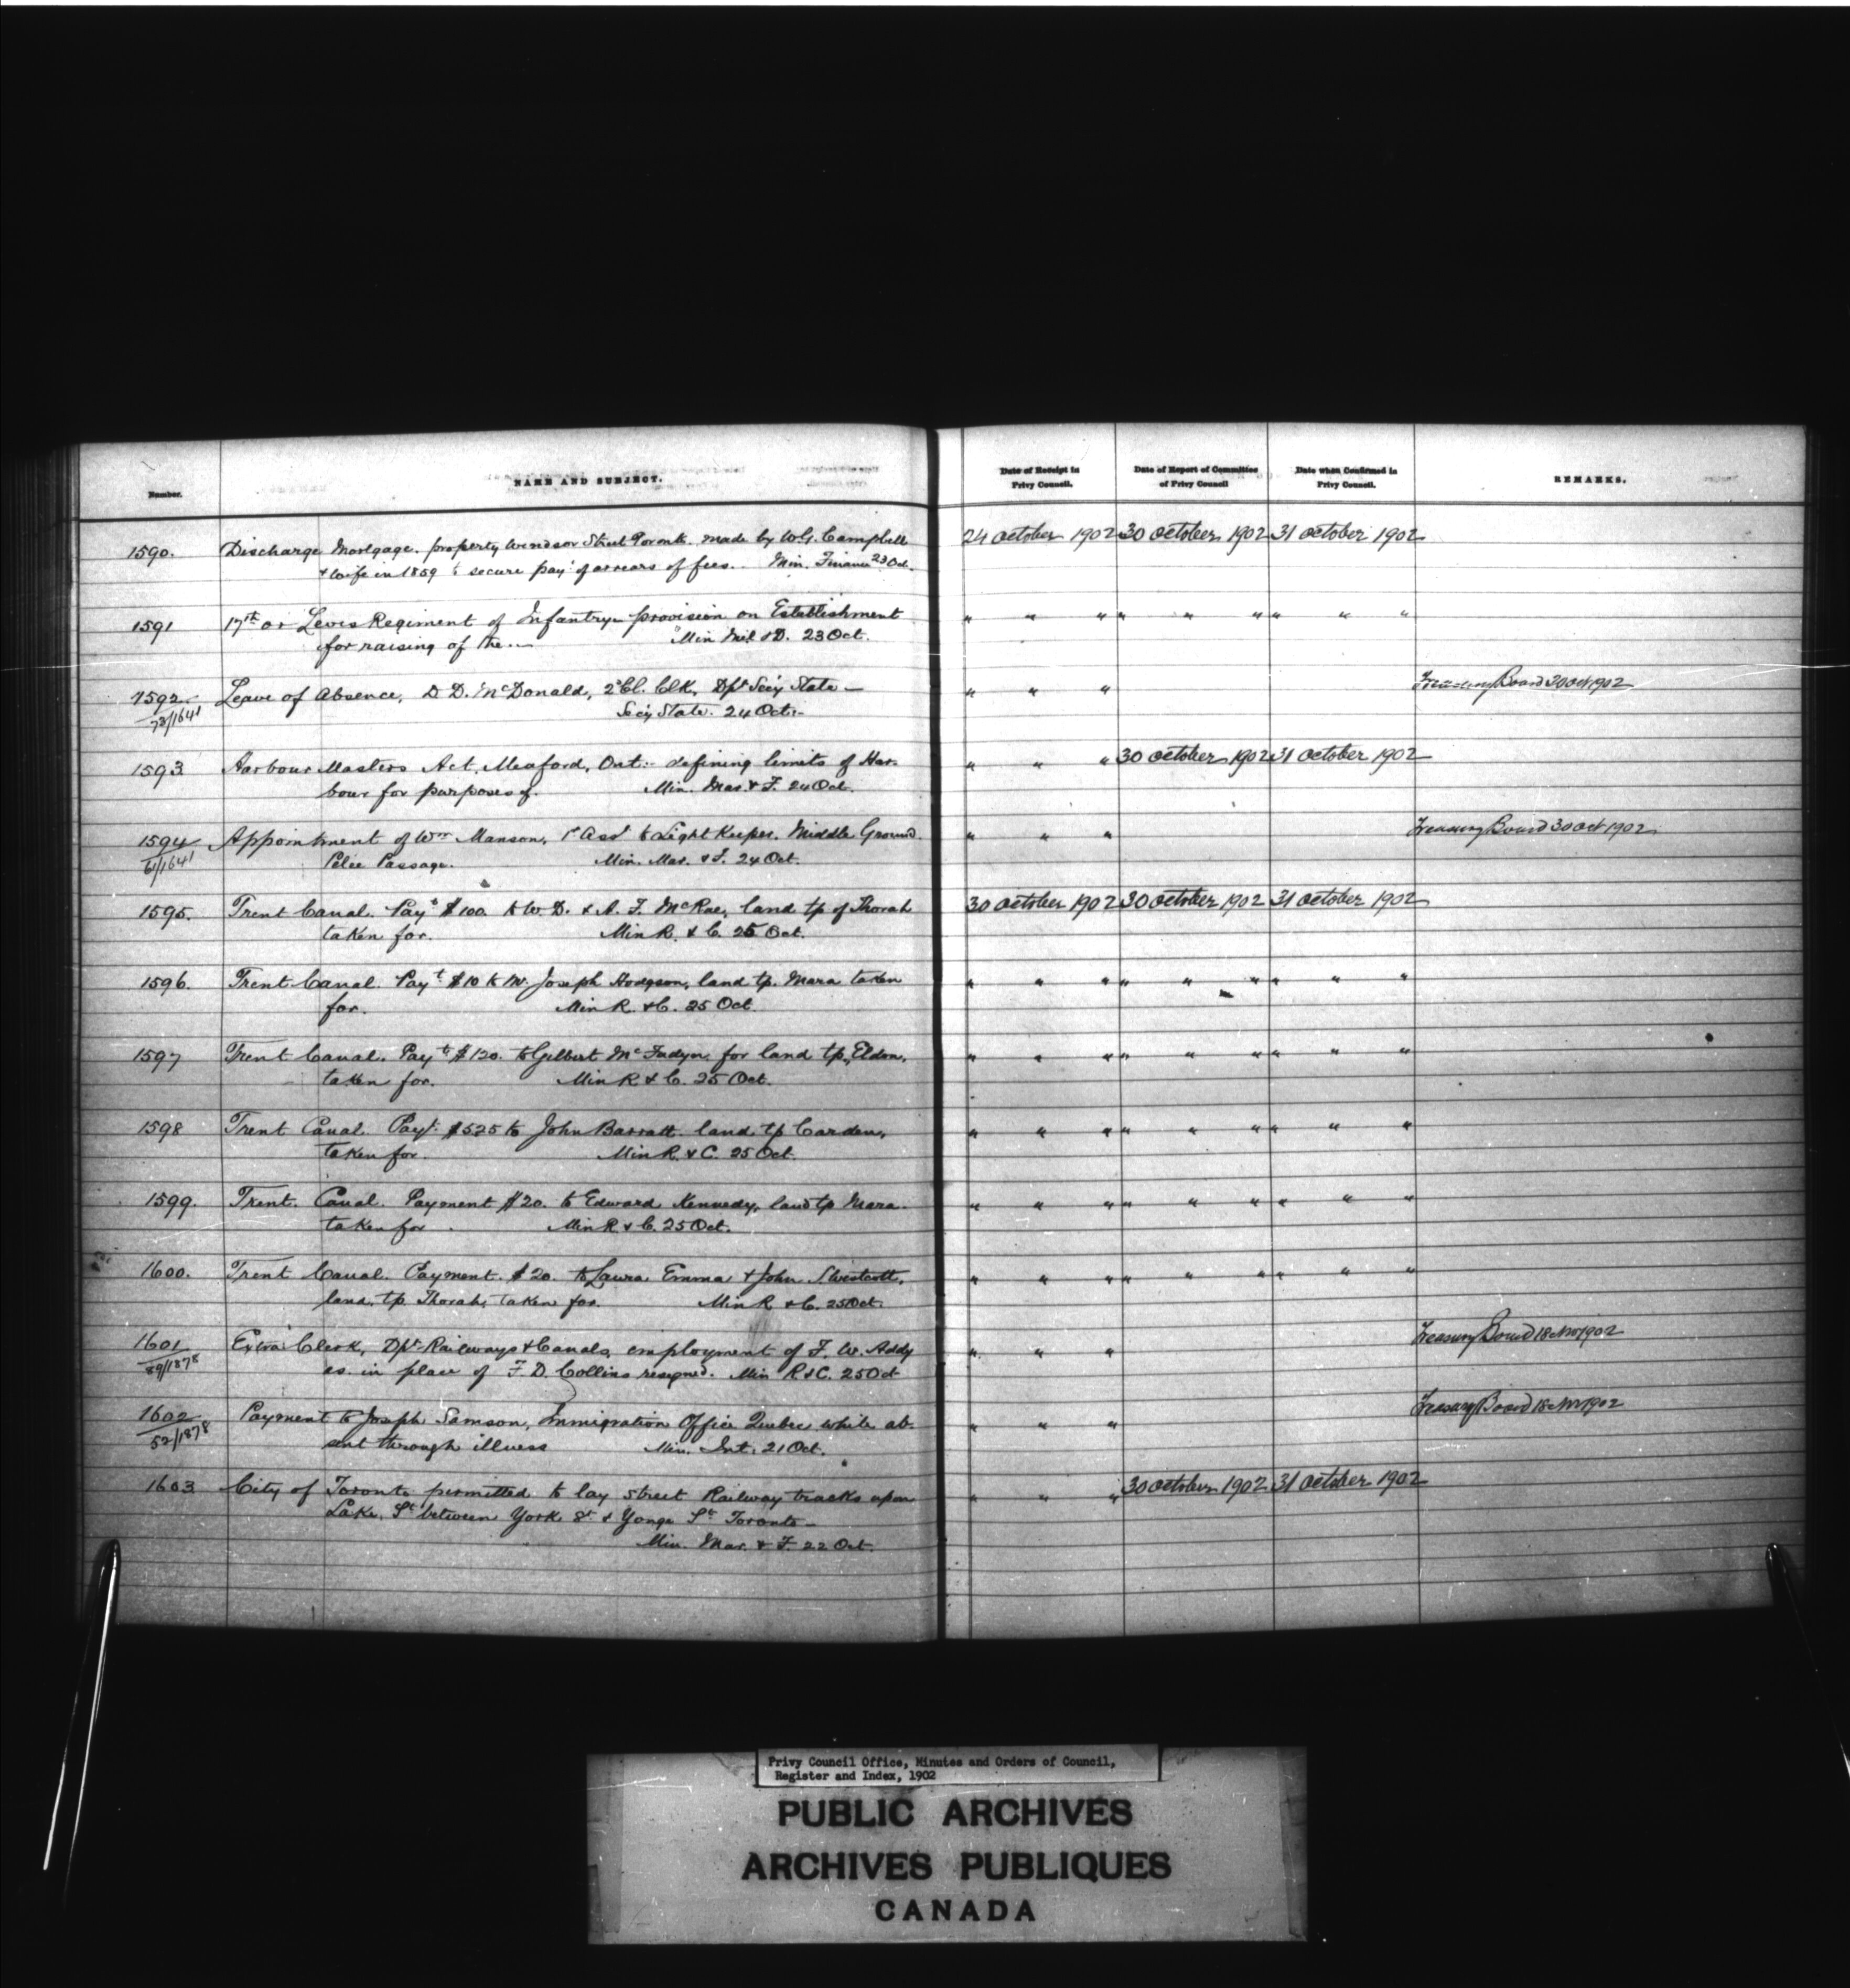 Number.
NAME AND SUBJECT.
Date of Receipt in
Privy Council.
Date of Report of Committee
of Privy Council
Date when Confirmed in
Privy Council.
REMARKS.
1590. Discharge Mortgage. property Windsor Street Toronto. made by W.G. Campbell 24 October 1902 30 October 1902 31 October 1902
& Wife in 1859 to secure payt of arrears of fees. Min. Finance 23 Oct.
1591 17th or Levis Regiment of Infantry provision on Establishment " " " " " " " " "
for raising of the Min Mil & D. 23 Oct.
1592 Leave of Absence, D D. McDonald, 2d Cl. Clk, Dpt Secy State " " " Treasury Board 30 Oct 1902
73/1641 Secy State. 24 Oct.
1593 Harbour Masters Act, Meaford, Ont. defining limits of Har- " " " 30 October 1902 31 October 1902
bour for purposes of. Min. Mar. & F. 24 Oct.
1594 Appointment of Wm Manson, 1st Asst to Light Keeper. Middle Ground " " " Treasury Board 30 Oct 1902
61/1641 Pelee Passage. Min. Mar. & F. 24 Oct.
1595. Trent Canal. Payt $100. to W. D. & A. F. McRae, land tp of Thorah 30 October 1902 30 October 1902 31 October 1902
taken for. Min R. & C. 25 Oct.
1596. Trent Canal. Payt $10 to Mr. Joseph Hodgson, land tp. Mara taken " " " " " " " " "
for. Min R. & C. 25 Oct
1597 Trent Canal. Payt $120. to Gilbert McFadyn for land tp. Eldon, " " " " " " " " "
taken for. Min R & C. 25 Oct.
1598 Trent Canal. Payt. $525 to John Barratt land tp Carden, " " " " " " " " "
taken for Min R. & C. 25 Oct.
1599. Trent. Canal. Payment $20. to Edward Kennedy, land tp Mara. " " " " " " " " "
taken for Min R & C. 25 Oct.
1600. Trent Canal. Payment. $20. to Laura Emma & John " " " " " " " " "
land, tp. Thorah, taken for. Min R & C. 25 Oct.
1601 Extra Clerk, Dpt Railways & Canals, employment of F. W. Addy " " " Treasury Board 18 Nov 1902
89/1878 as. in place of F. D. Collins resigned. Min R & C. 25 Oct
1602 Payment to Joseph Samson, Immigration Office Quebec while ab- " " " Treasury Board 18 Nov 1902
52/1878 sent through illness Min. Int. 21 Oct.
1603 City of Toronto permitted to lay street Railway tracks upon " " " 30 October 1902 31 October 1902
Lake. St between York St & Yonge St Toronto
Min. Mar. & F. 22 Oct.
Privy Council Office, Minutes and Orders of Council,
Register and Index, 1902
PUBLIC ARCHIVES
ARCHIVES PUBLIQUES
CANADA